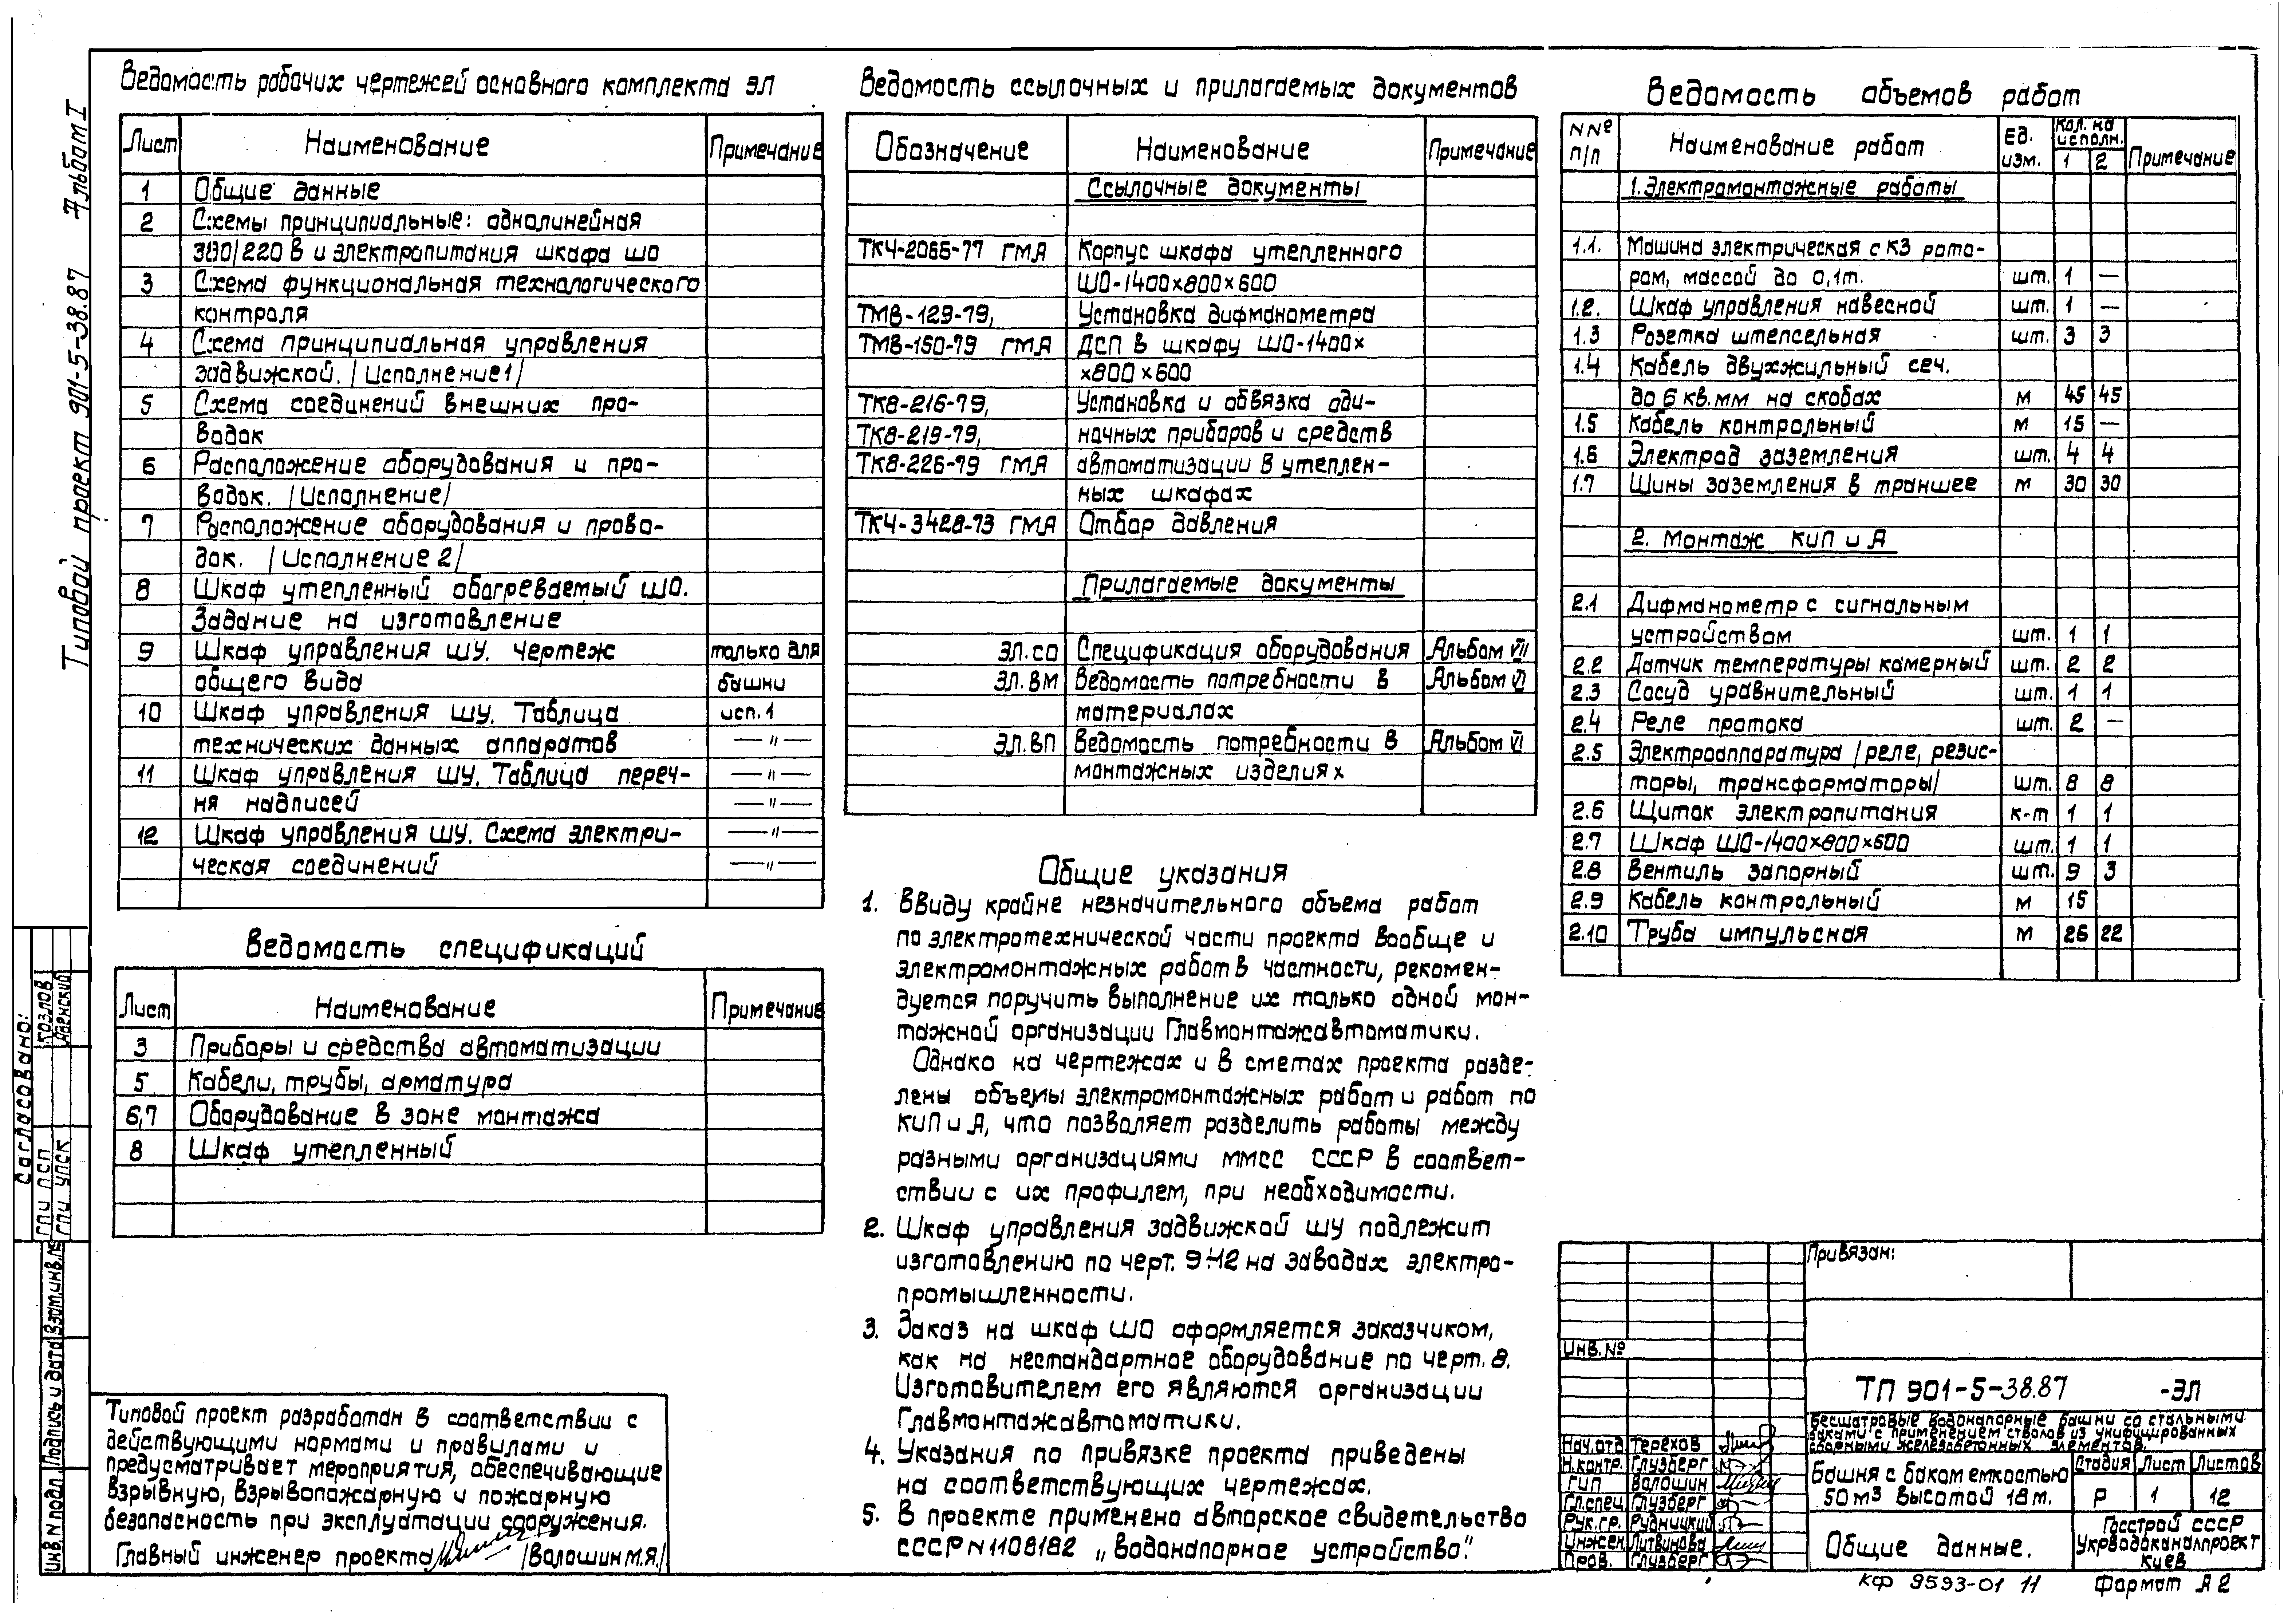 Типовой проект 901-5-38.87 Альбом I
Ведомость рабочих чертежей основного комплекта ЭЛ
Лист Наименование Примечание
1 Общие данные
2 Схемы принципиальные: однолинейная
380/220 В и электропитания шкафа ШО
3 Схема функциональная технологического
контроля
4 Схема принципиальная управления
задвижкой. /Исполнение 1/
5 Схема соединений внешних про-
водок
6 Расположение оборудования и про-
водок. /Исполнение/
7 Расположение оборудования и прово-
док. /Исполнение 2/
8 Шкаф утепленный обогреваемый ШО.
Задание на изготовление
9 Шкаф управления ШУ. Чертеж только для
общего вида башни
10 Шкаф управления ШУ. Таблица исп. 1
технических данных аппаратов —"—
11 Шкаф управления ШУ. Таблица переч- —"—
ня надписей —"—
12 Шкаф управления ШУ. Схема электри- —"—
ческая соединений —"—
Ведомость спецификаций
Лист Наименование Примечание
3 Приборы и средства автоматизации
5 Кабели, трубы, арматура
6,7 Оборудование в зоне монтажа
8 Шкаф утепленный
Типовой проект разработан в соответствии с
действующими нормами и правилами и
предусматривает мероприятия, обеспечивающие
взрывную, взрывопожарную и пожарную
безопасность при эксплуатации сооружения.
Главный инженер проекта /Волошин М.Я./
Ведомость ссылочных и прилагаемых документов
Обозначение Наименование Примечание
Ссылочные документы
ТКЧ-2066-77 ГМА Корпус шкафа утепленного
ШО-1400х800х600
ТМВ-129-79, Установка дифманометра
ТМВ-150-79 ГМА ДСП в шкафу ШО-1400х
х800х600
ТК8-216-79, Установка и обвязка оди-
ТК8-219-79, ночных приборов и средств
ТК8-226-79 ГМА автоматизации в утеплен-
ных шкафах
ТКЧ-3428-73 ГМА Отбор давления
Прилагаемые документы
ЭЛ.СО Спецификация оборудования Альбом VII
ЭЛ.ВМ Ведомость потребности в Альбом VI
материалах
ЭЛ.ВП Ведомость потребности в Альбом VI
монтажных изделиях
Общие указания
1. Ввиду крайне незначительного объема работ
по электротехнической части проекта вообще и
электромонтажных работ в частности, рекомен-
дуется поручить выполнение их только одной мон-
тажной организации Главмонтажавтоматики.
Однако на чертежах и в сметах проекта разде-
лены объемы электромонтажных работ и работ по
КИП и А, что позволяет разделить работы между
разными организациями ММСС СССР в соответ-
ствии с их профилем, при необходимости.
2. Шкаф управления задвижкой ШУ подлежит
изготовлению по черт. 9÷12 на заводах электро-
промышленности.
3. Заказ на шкаф ШО оформляется заказчиком,
как на нестандартное оборудование по черт. 8.
Изготовителем его являются организации
Главмонтажавтоматики.
4. Указания по привязке проекта приведены
на соответствующих чертежах.
5. В проекте применено авторское свидетельство
СССР N 1108182 „Водонапорное устройство".
Ведомость объемов работ
NNº п/п Наименование работ Ед. изм. Кол. на исполн. 1 2 Примечание
1. Электромонтажные работы
1.1. Машина электрическая с КЗ рото-
ром, массой до 0,1т. шт. 1 —
1.2. Шкаф управления навесной шт. 1 —
1.3 Розетка штепсельная шт. 3 3
1.4 Кабель двухжильный сеч.
до 6 кв.мм на скобах м 45 45
1.5 Кабель контрольный м 15 —
1.6 Электрод заземления шт. 4 4
1.7 Шины заземления в траншее м 30 30
2. Монтаж КИП и А
2.1 Дифманометр с сигнальным
устройством шт. 1 1
2.2 Датчик температуры камерный шт. 2 2
2.3 Сосуд уравнительный шт. 1 1
2.4 Реле протока шт. 2 —
2.5 Электроаппаратура /реле, резис-
торы, трансформаторы/ шт. 8 8
2.6 Щиток электропитания к-т 1 1
2.7 Шкаф ШО-1400х800х600 шт. 1 1
2.8 Вентиль запорный шт. 9 3
2.9 Кабель контрольный м 15
2.10 Труба импульсная м 26 22
Привязан:
Инв. Nº
ТП 901-5-38.87 -ЭЛ
Бесшатровые водонапорные башни со стальными
баками с применением стволов из унифицированных
сборными железобетонных элементов.
Нач.отд. Терехов
Н.контр. Глузберг
ГИП Волошин
Гл.спец. Глузберг
Рук.гр. Рудницкий
Инжен. Литвинова
Пров. Глузберг
Башня с баком емкостью
50м3 высотой 18м.
Стадия Лист Листов
Р 1 12
Общие данные.
Госстрой СССР
Укрводоканалпроект
Киев
КФ 9593-01 11 Формат А2
Согласовано:
ГПИ ПСП Козлов
ГПИ УПСК
Инв. N подл. Подпись и дата Взам.инв.Nº